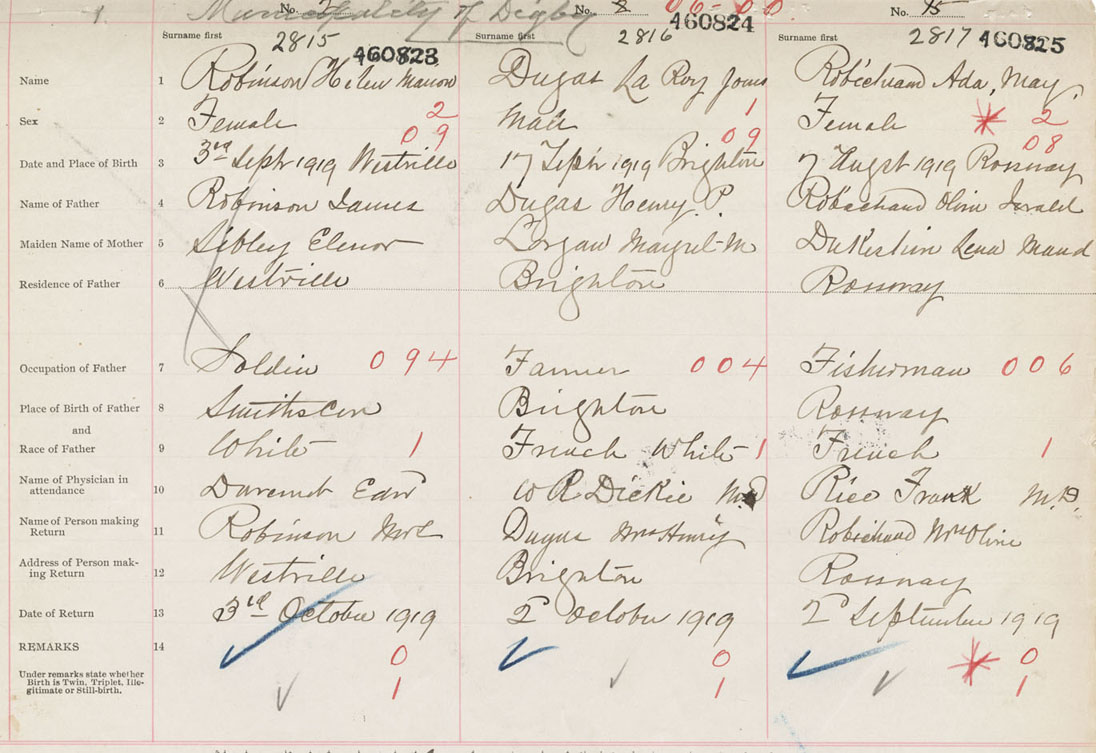 Municipality of Digby
No. No. 8 06-00 No. 15
Surname first 2815 460823 Surname first 2816 460824 Surname first 2817 460825
Name 1 Robinson Helen Marion Dugas La Roy Jones Robichaud Ada, May
Sex 2 Female 2 Male 1 Female * 2
09 09 08
Date and Place of Birth 3 3rd Sept 1919 Westville 17 Sept 1919 Brighton 7 August 1919 Rossway
Name of Father 4 Robinson James Dugas Henry P. Robichaud Olin Jerald
Maiden Name of Mother 5 Sibley Elenor Margret M Lena Maud
Residence of Father 6 Westville Brighton Rossway
Occupation of Father 7 Soldier 094 Farmer 004 Fisherman 006
Place of Birth of Father 8 Brighton Rossway
and
Race of Father 9 White 1 French White 1 French 1
Name of Physician in
attendance 10 W R Dickie M.D Rice Frank M.D.
Name of Person making
Return 11 Robinson Dugas Mrs Henry Robichaud Mrs Olin
Address of Person mak-
ing Return 12 Westville Brighton Rossway
Date of Return 13 3rd October 1919 2d October 1919 2d September 1919
REMARKS 14 0 0 * 0
Under remarks state whether
Birth is Twin, Triplet, Ille-
gitimate or Still-birth. 1 1 1